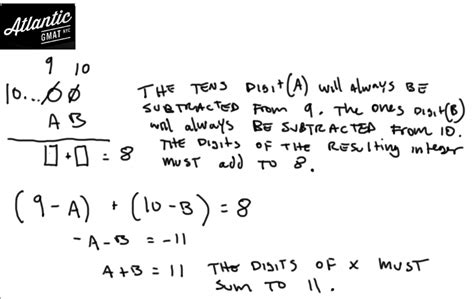 Atlantic
GMAT NYC
9 10
10...00
A B
□+□ = 8
THE TENS DIGIT(A) WILL ALWAYS BE
SUBTRACTED FROM 9. THE ONES DIGIT(B)
will always BE SUBTRACTED FROM 10.
THE DIGITS OF THE RESULTING integer
MUST add TO 8.
(9-A) + (10-B) = 8
-A-B = -11
A+B = 11 THE DIGITS OF X MUST
SUM TO 11.